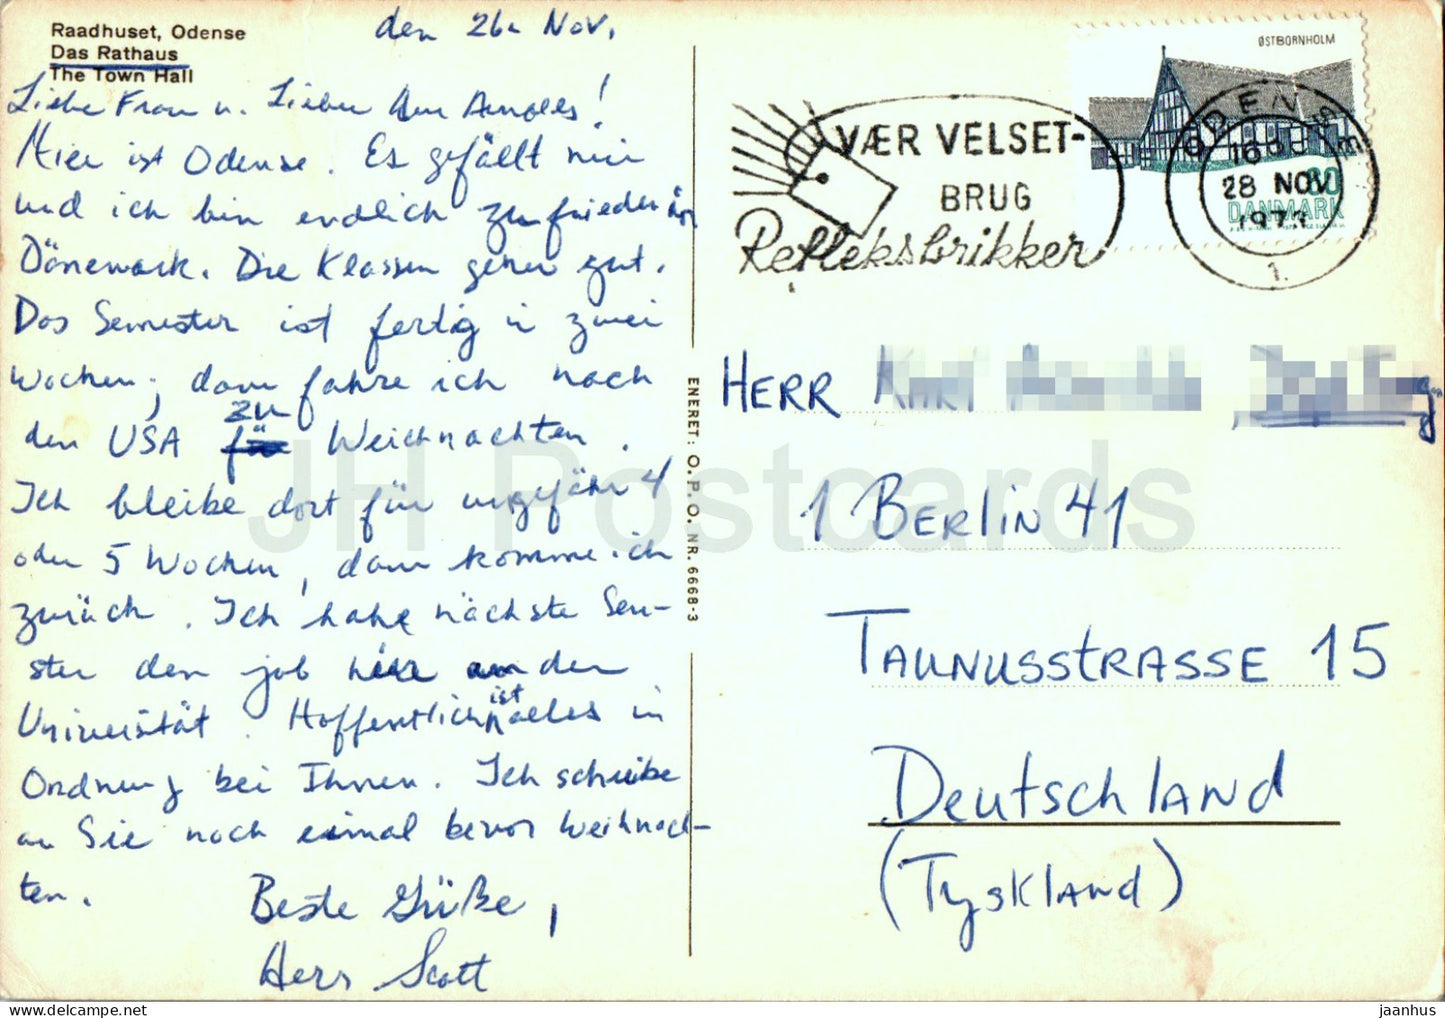 Raadhuset, Odense
Das Rathaus
The Town Hall
den 26. Nov.
Liebe Frau u. Lieber Herr
Hier ist Odense. Es gefällt mir
und ich bin endlich zufrieden in
Dänemark. Die Klassen gehen gut.
Das Semester ist fertig in zwei
Wochen; dann fahre ich nach
den USA zu Weichnachten.
Ich bleibe dort für ungefähr 4
oder 5 Wochen, dann komme ich
zurück. Ich habe nächste Sem-
ster den job hier an der
Universität. Hoffentlich ist alles in
Ordnung bei Ihnen. Ich schreibe
an Sie noch einmal bevor Weihnach-
ten.
Beste Grüße,
Herr Scott
ENERET: O.P.O. NR. 6668-3
VÆR VELSET-
BRUG
Refleksbrikker
ØSTBORNHOLM
60
DANMARK
ODENSE
28 NOV
1.
HERR
1 BERLIN 41
TAUNUSSTRASSE 15
DEUTSCHLAND
(TYSKLAND)
JH Postcards
jaanhus